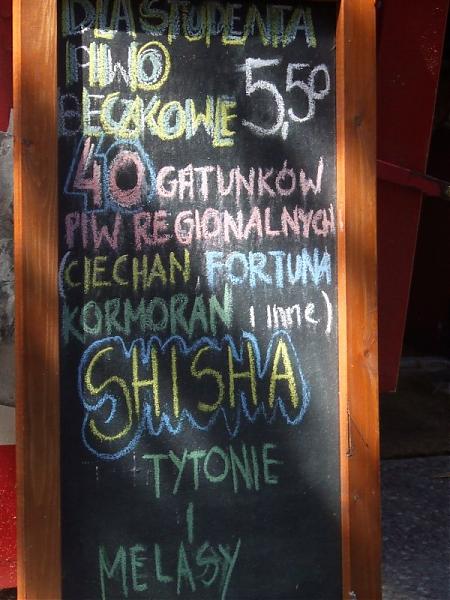 DLA STUDENTA
PIWO
BECZKOWE 5,50
40 GATUNKÓW
PIW REGIONALNYCH
(CIECHAN, FORTUNA
KORMORAN i inne)
SHISHA
TYTONIE
I
MELASY